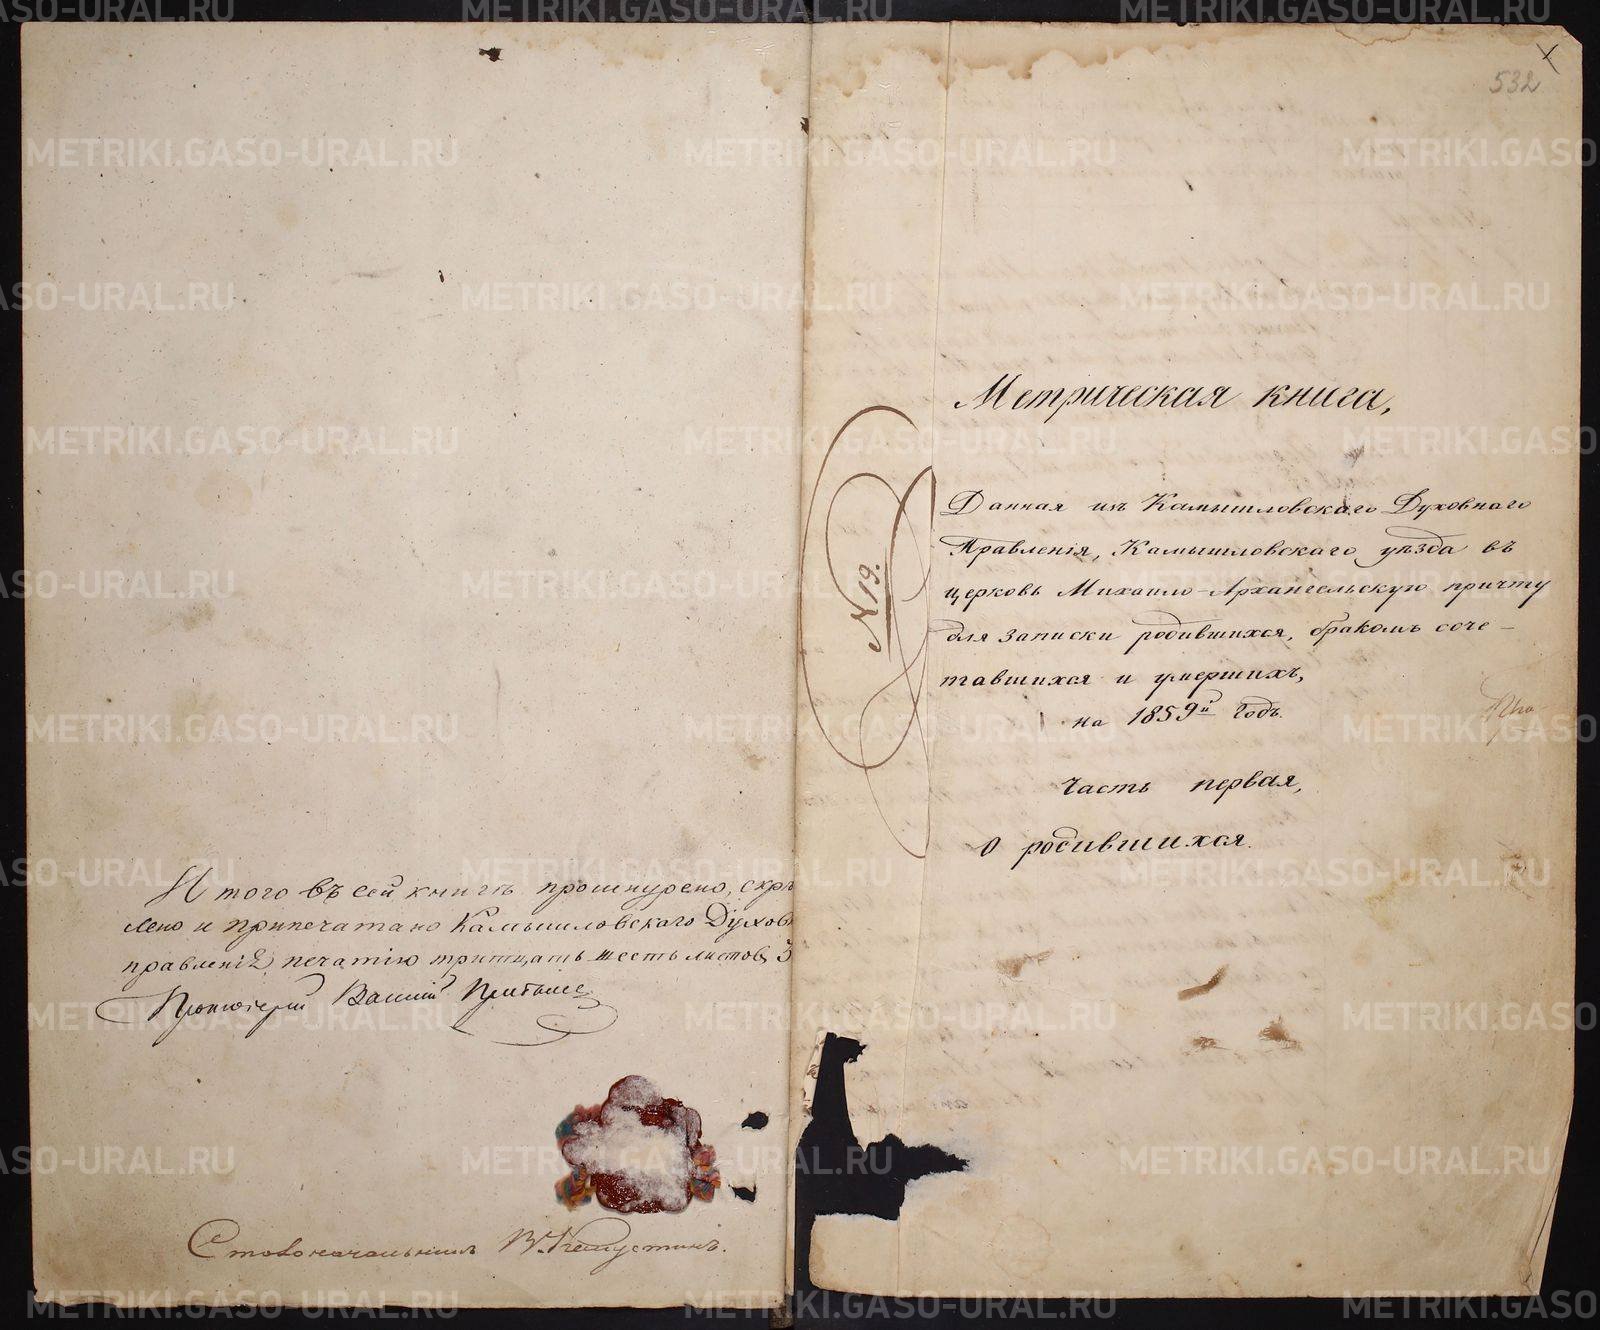 Итого въ сей книгѣ прошнурено, скрѣ
лено и припечатано Камышловскаго Духов
правленія печатію тритцать шесть листов. 3
Протоіерей Василій
Столоначальникъ В. Капустинъ.
532
№ 19.
Метрическая книга,
Данная изъ Камышловскаго Духовнаго
Правленія, Камышловскаго уѣзда въ
церковь Михаило-Архангельскую причту
для записки родившихся, бракомъ соче-
тавшихся и умершихъ,
на 1859й Годъ.
Часть первая,
О родившихся.
METRIKI.GASO-URAL.RU